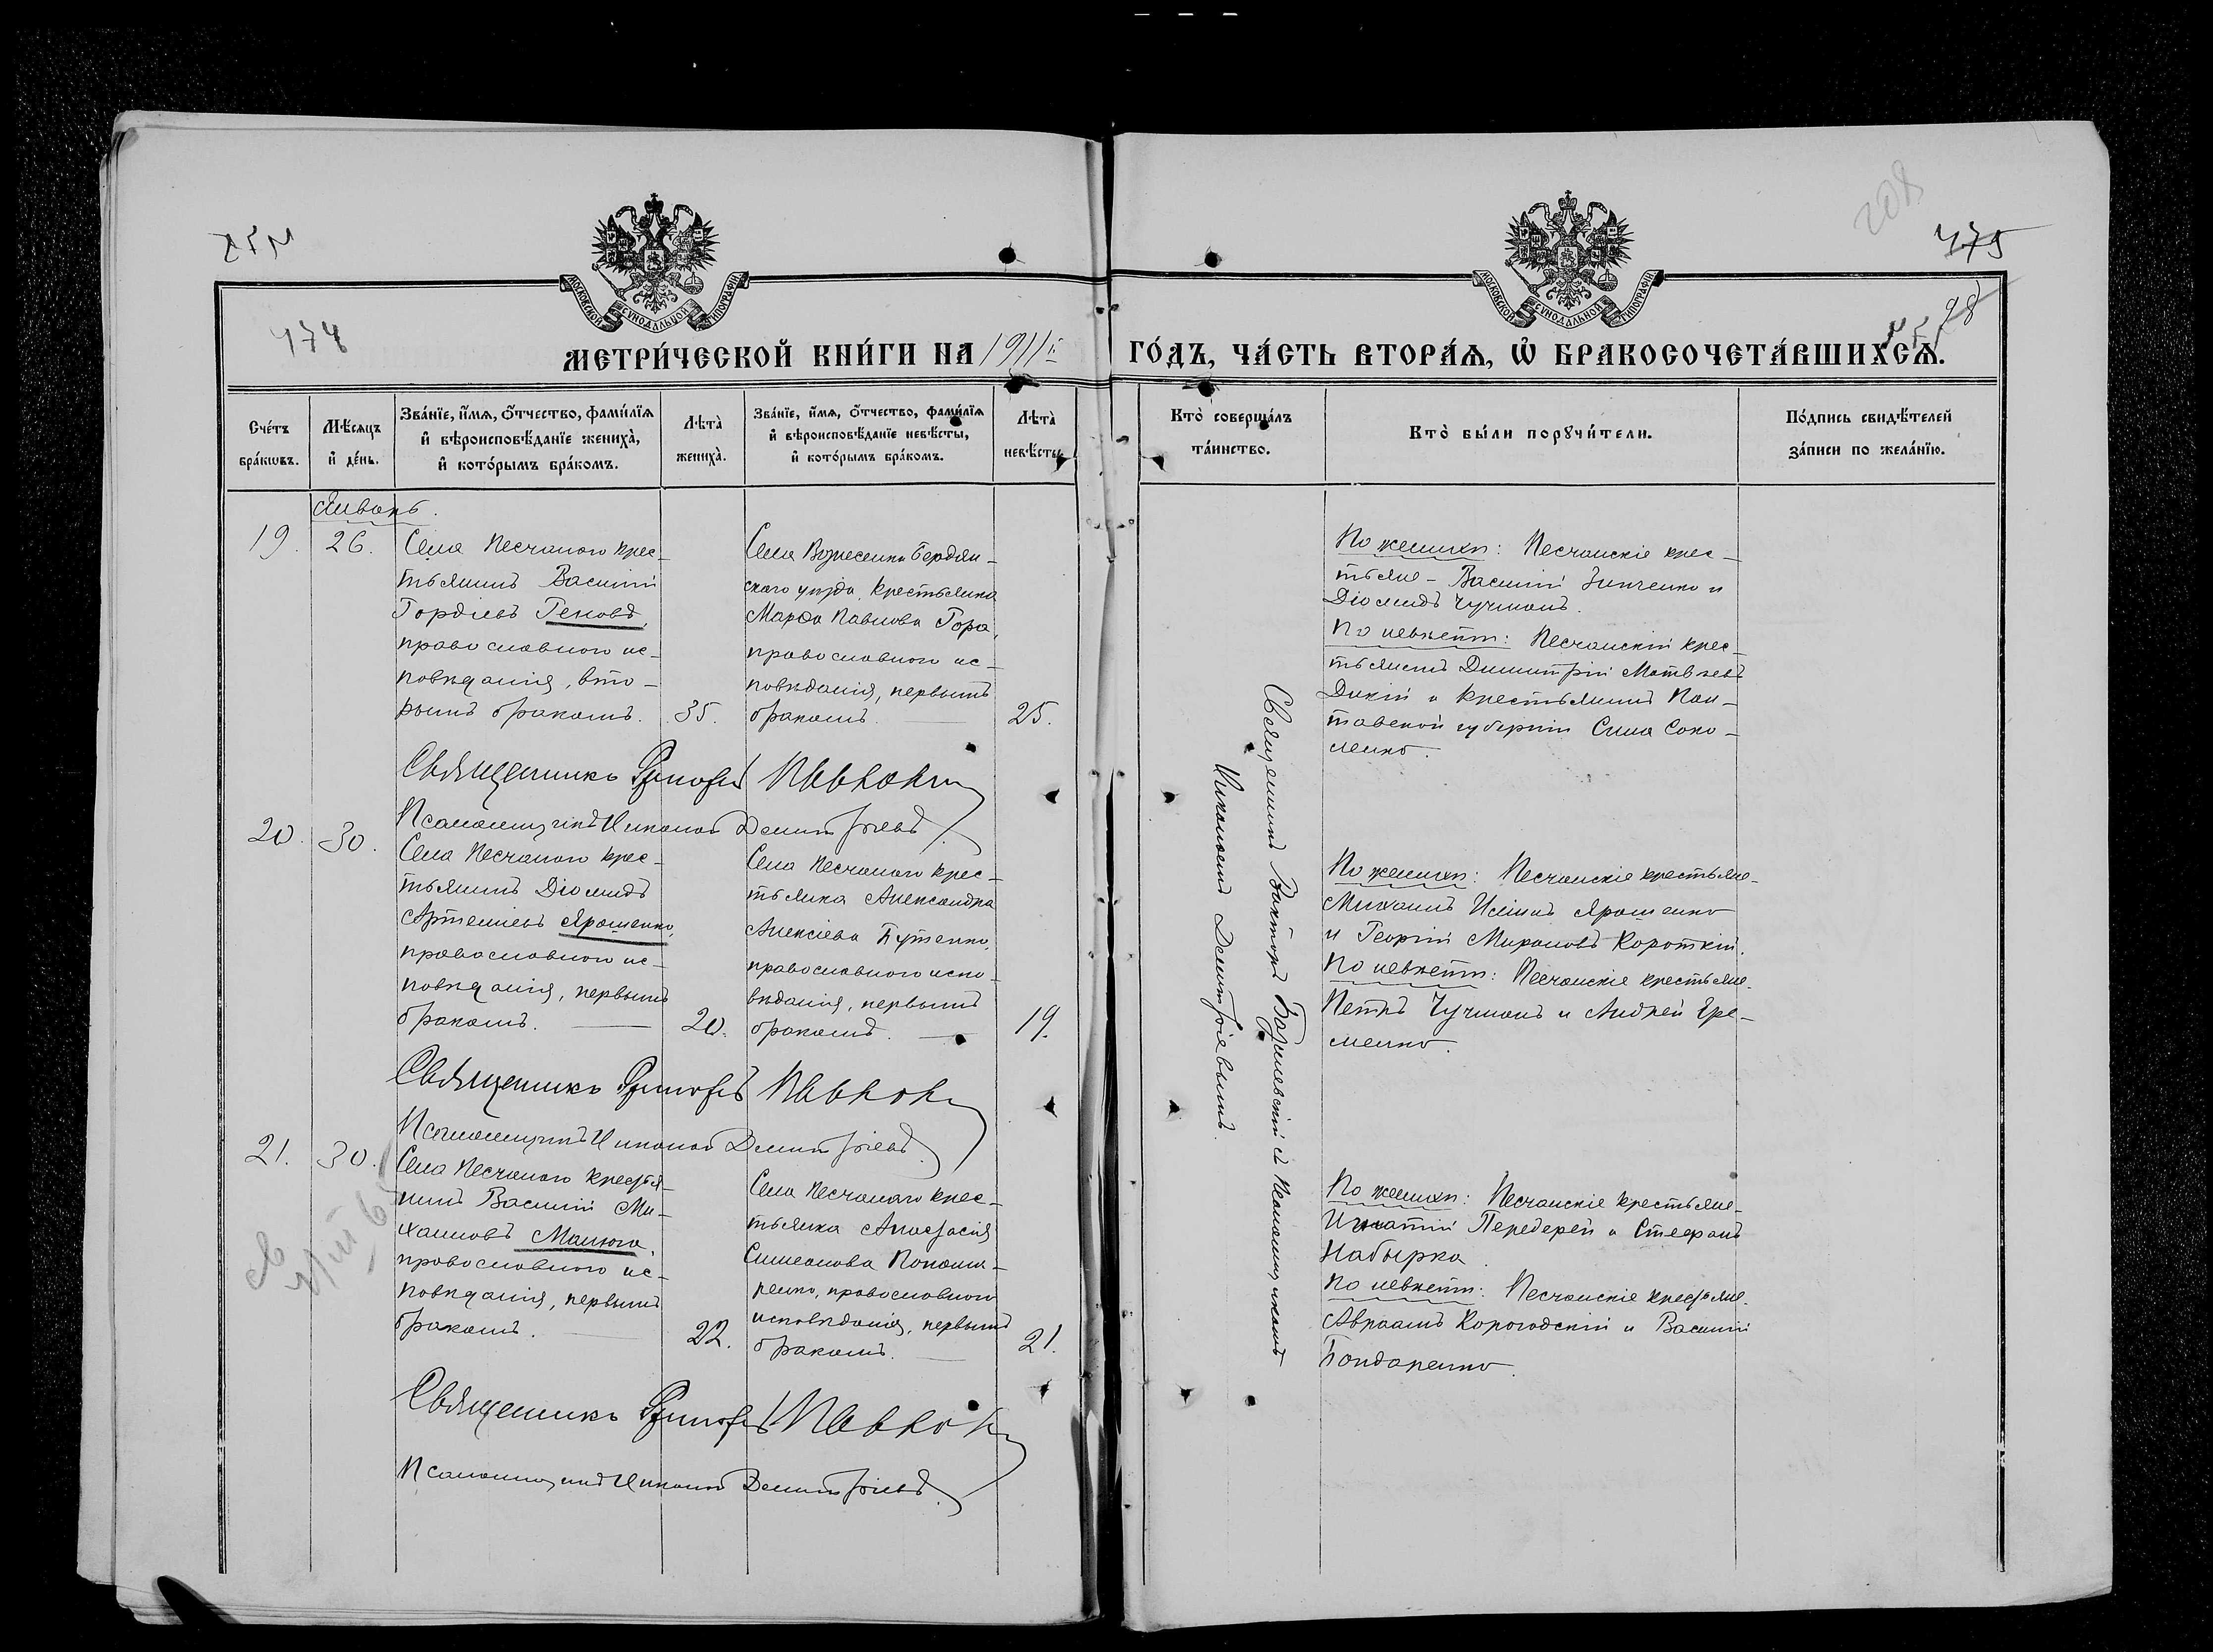 475
208
474
98
МОСКОВСКОЙ СѴНОДАЛЬНОЙ ТИПОГРАФІИ
МОСКОВСКОЙ СѴНОДАЛЬНОЙ ТИПОГРАФІИ
МЕТРИ́ЧЕСКОЙ КНИ́ГИ НА 1911й ГО́ДЪ, ЧА́СТЬ ВТОРА́Ѧ, Ѽ БРАКОСОЧЕТА́ВШИХСѦ.
Сче́тъ
бра́кѡвъ.
Мѣ́сяцъ
и҆ де́нь.
Зва́нїе, и҆́мѧ, ѻ҆́тчество, фами́лїѧ
и҆ вѣроисповѣ́данїе жениха̀,
и҆ кото́рымъ бра́комъ.
Лѣта̀
жениха̀.
Зва́нїе, и҆́мѧ, ѻ҆́тчество, фами́лїѧ
и҆ вѣроисповѣ́данїе невѣ́сты,
и҆ кото́рымъ бра́комъ.
Лѣта̀
невѣ́сты.
Кто̀ соверша́лъ
та́инство.
Кто̀ бы́ли порꙋчи́тели.
По́дпись свидѣ́телей
за́писи по жела́нїю.
Январь.
19.
26.
Села Песчаного крес-
тьянинъ Василій
Гордіевъ Геновъ,
православного ис-
повѣданія, вто-
рымъ бракомъ.
35.
Села Вознесенки Бердян-
ского уѣзда, крестьянка
Марѳа Павлова Гора,
православного ис-
повѣданія, первымъ
бракомъ.
25.
По женихѣ: Песчанскіе крес-
тьяне - Василій Зинченко и
Діомидъ Чучманъ.
По невѣстѣ: Песчанскій крес-
тьянинъ Димитрій Матвѣевъ
Дикій и крестьянинъ Пол-
тавской губерніи Сила Соко-
ленко.
Священникъ
Псаломщикъ Николай Демитріевъ
20.
30.
Села Песчаного крес-
тьянинъ Діомидъ
Артеміевъ Ярошенко,
православного ис-
повѣданія, первымъ
бракомъ.
20.
Села Песчаного крес-
тьянка Александра
Алексіева Бутенко,
православного испо-
вѣданія, первымъ
бракомъ.
19.
По женихѣ: Песчанскіе крестьяне-
Михаилъ Исіинъ Ярошенко
и Георгій Мироновъ Короткій.
По невѣстѣ: Песчанскіе крестьяне-
Петръ Чучманъ и Андрей Ере-
менко.
Священникъ
Псаломщикъ Николай Демитріевъ
21.
30.
Села Песчаного крестья-
нинъ Василій Ми-
хаиловъ Малюга,
православного ис-
повѣданія, первымъ
бракомъ.
22.
Села Песчаного крес-
тьянка Анастасія
Симеонова Понома-
ренко, православного
исповѣданія, первымъ
бракомъ.
21.
По женихѣ: Песчанскіе крестьяне-
Игнатій Передерей и Стефанъ
Набырка.
По невѣстѣ: Песчанскіе крестьяне-
Авраамъ Корогодскій и Василій
Бондаренко.
Священникъ
Псаломщикъ Николай Демитріевъ
Священникъ Викторъ Базилевскій съ Псаломщикомъ
Николаемъ Демитріевымъ.